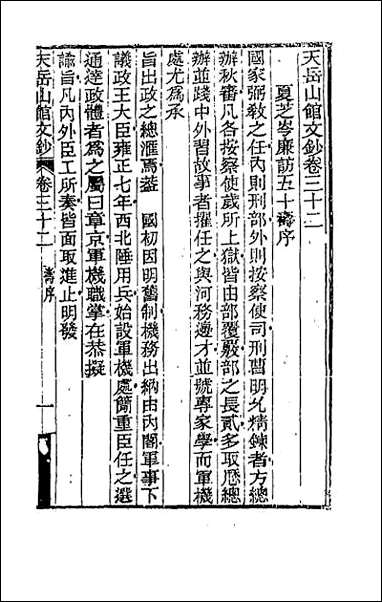 天岳山館文鈔卷三十二
夏芝岑廉訪五十壽序
國家弼教之任內則刑部外則按察使司刑曹明允精鍊者方總
辦秋審凡各按察使蕆所上獄皆由部覆覈部之長貳多取厯總
辦並踐中外習故事者擢任之與河務邊才並號專家學而軍機
處尤為承
旨出政之總滙焉蓋 國初因明舊制機務出納由內閣軍事下
議政王大臣雍正七年西北陲用兵始設軍機處簡重臣任之選
通達政體者為之屬曰章京軍機職掌在恭擬
諭旨凡內外臣工所奏皆面取進止明發
天岳山館文鈔 卷三十二 壽序 一